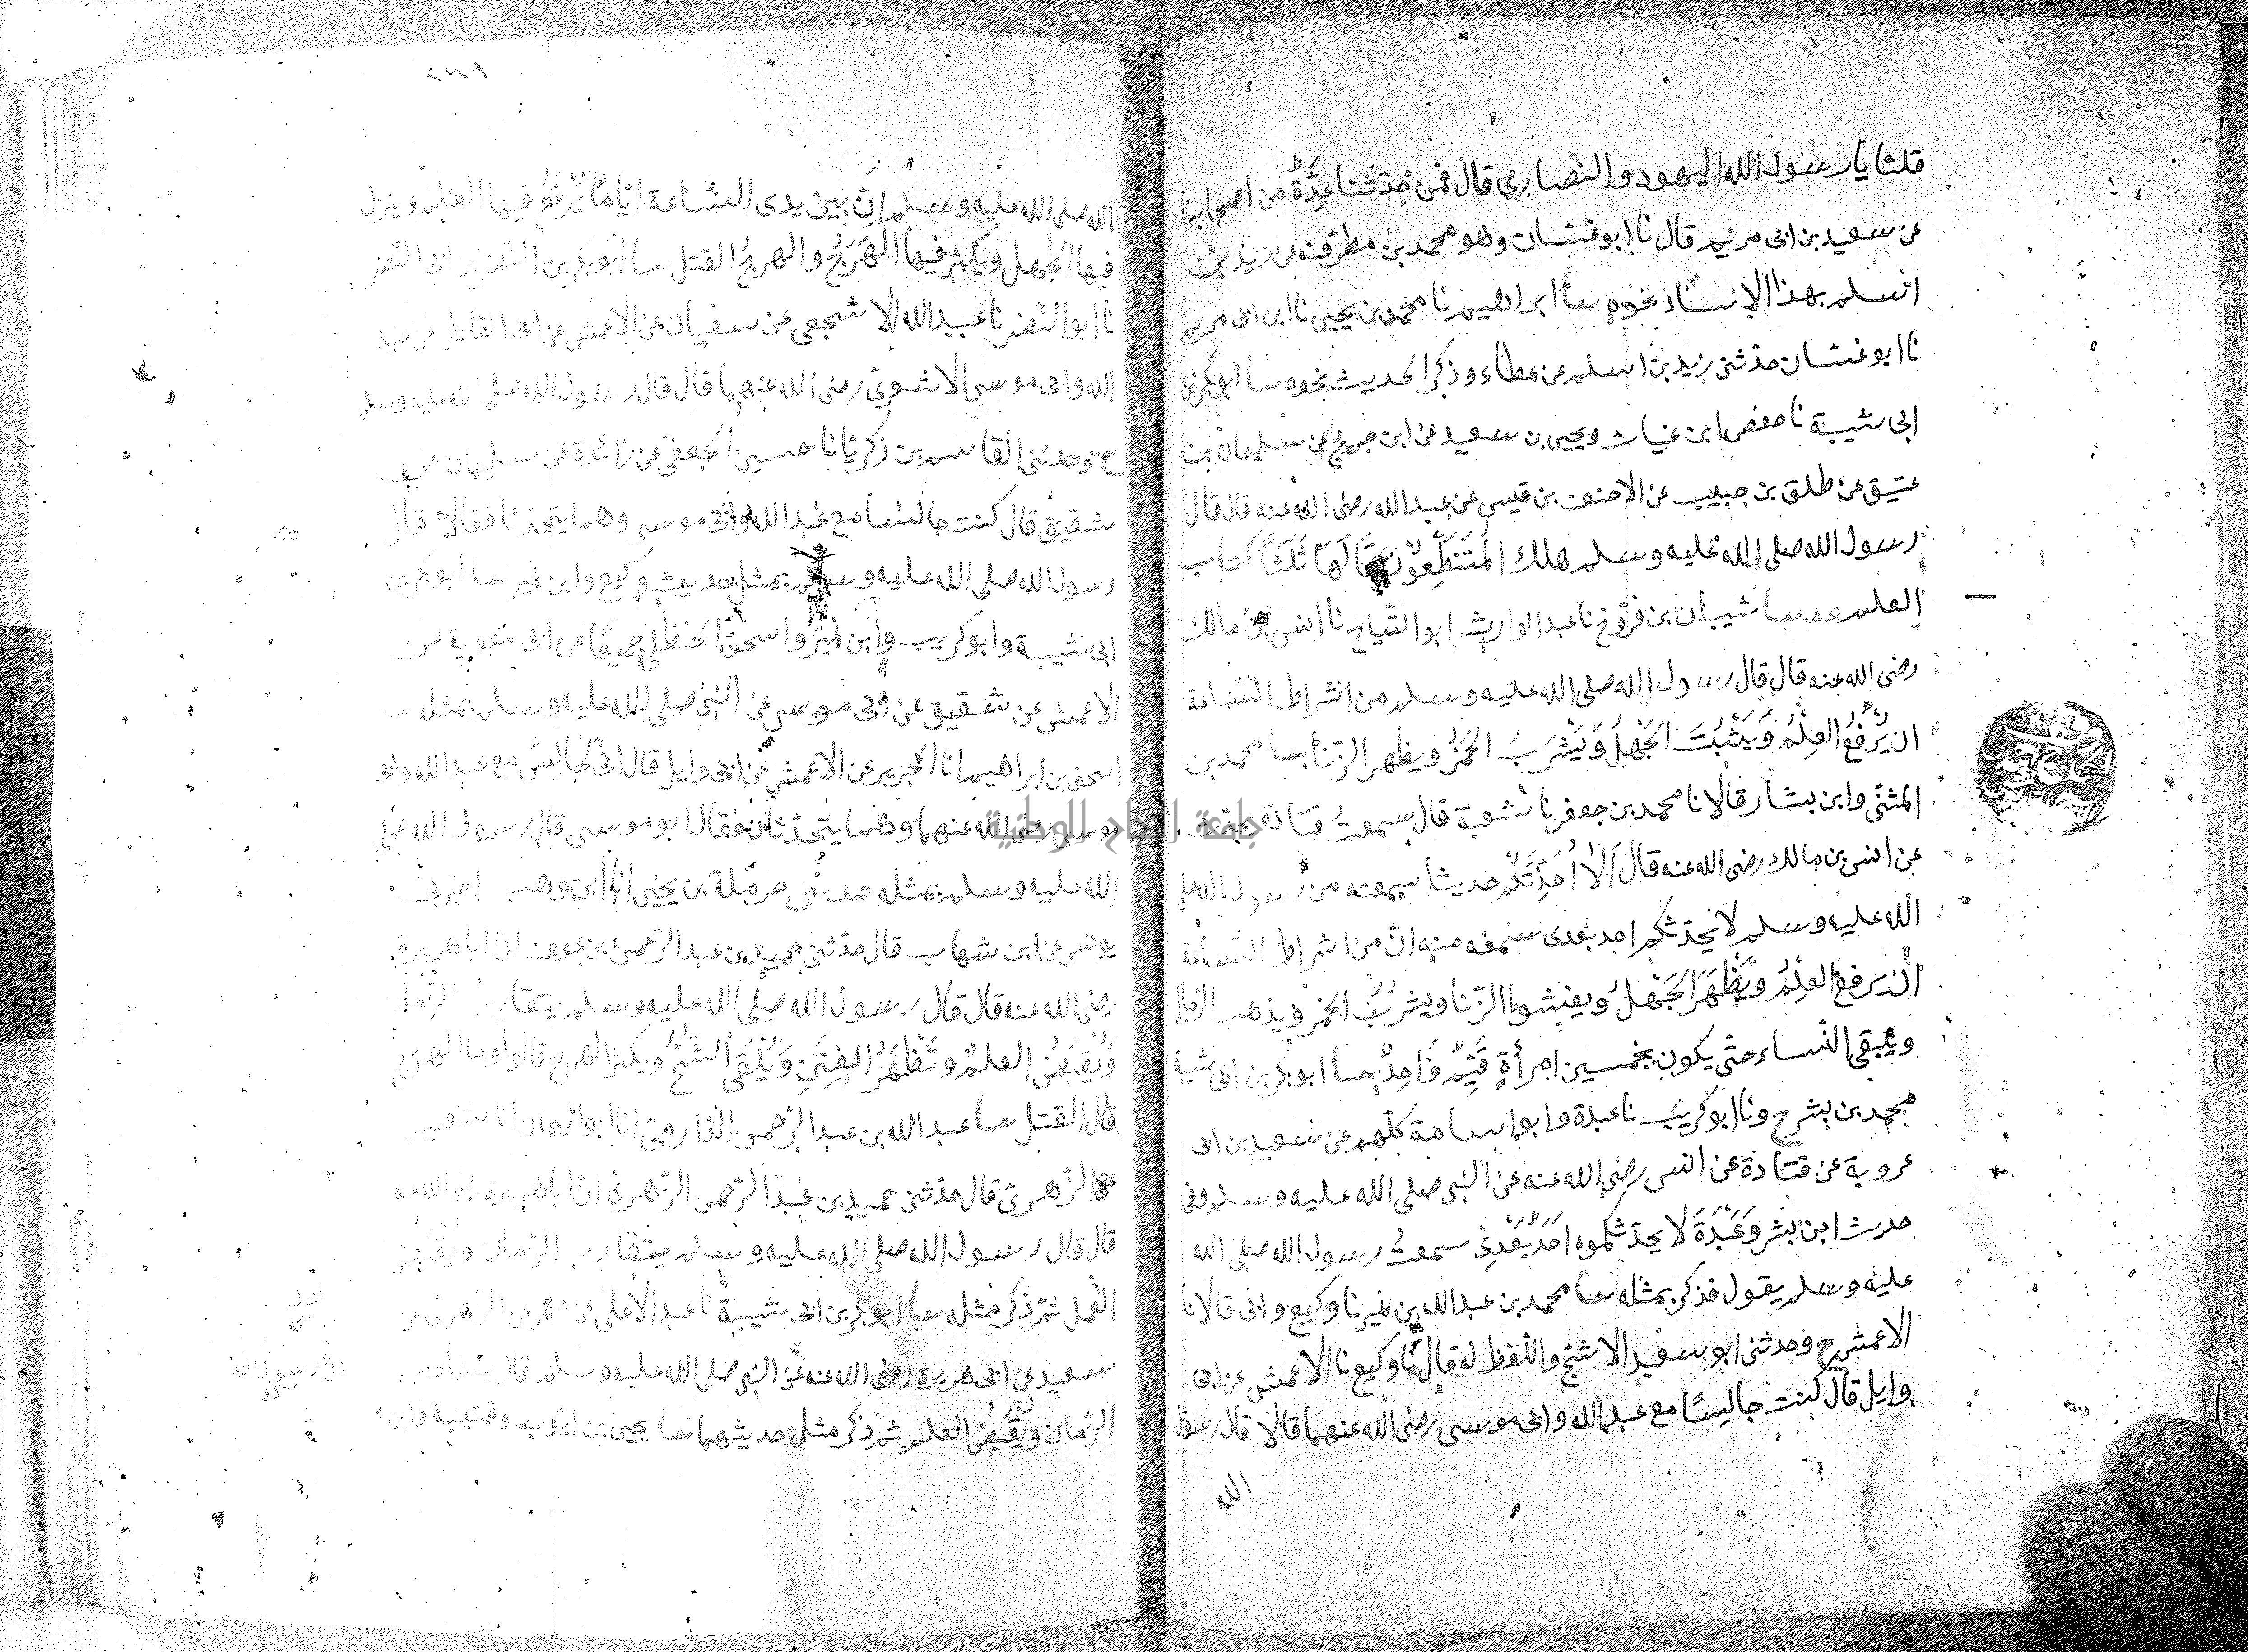 قلنا يا رسول الله اليهود والنصارى قال فمن حدثنا عِدَّةٌ من اصحابنا
عن سعيد بن ابى مريم قال نا ابو غسان وهو محمد بن مطرف عن زيد بن
اسلم بهذا الاسناد نحوه سا ابراهيم نا محمد بن يحيى نا ابن ابى مريم
نا ابو غسان حدثنى زيد بن اسلم عن عطاء وذكر الحديث نحوه سا ابو بكر بن
ابى شيبة نا حفص ابن غياث ويحيى بن سعيد عن ابن جريج عن سليمان بن
عتيق عن طلق بن حبيب عن الاحنف بن قيس عن عبد الله رضى الله عنه قال قال
رسول الله صلى الله عليه وسلم هلك المُتَنَطِّعُونَ قَالَهَا ثَلَثًا كتاب
العلم حدسا شيبان بن فرّوخ نا عبد الوارث ابو التياح نا انس بن مالك
رضى الله عنه قال قال رسول الله صلى الله عليه وسلم من اشراط الساعة
ان يُرْفَعُ العِلْمُ وَيَثْبُتَ الجَهْلُ وَيُشْرَبُ الخَمْرُ ويظهر الزنا سا محمد بن
المثنى وابن بشار قالا نا محمد بن جعفر نا شعبة قال سمعتُ قتادة يحدث
عن انس بن مالك رضى الله عنه قال اَلَا أُحَدِّثُكُم حديثا سمعته من رسول الله صلى
الله عليه وسلم لا يحدثكم احد بعدى سمعه منه انّ من اشراط الساعة
اَنْ يرفع العِلْمُ وَيَظْهَرَ الجَهْلُ ويفشوا الزنا ويشربُ الخمر ويذهب الرجال
ويبقى النساء حتى يكون بخمسين امرأةٍ قَيِّمٌ وَاحِدٌ سا ابو بكر بن ابى شيبة
محمد بن بشر ح ونا ابو كريب نا عبدة وابو اسامة كلهم عن سعيد بن ابى
عروبة عن قتادة عن انس رضى الله عنه عن النبى صلى الله عليه وسلم وفى
حديث ابن بشر وَعَبْدَةَ لا يحدثكموه اَحَدٌ بَعْدِىْ سمعتُ رسول الله صلى الله
عليه وسلم يقول فذكر بمثله سا محمد بن عبد الله بن نمير نا وكيع وابى قالا نا
الاعمش ح وحدثنى ابو سعيد الاشج واللفظ له قال نا وكيع نا الاعمش عن ابى
وايل قال كنت جالسًا مع عبد الله وابى موسى رضى الله عنهما قالا قال رسول
الله
٢٧٩
الله صلى الله عليه وسلم انَّ بين يدى الساعة ايامًا يُرْفَعُ فيها العلم وينزل
فيها الجهل ويكثر فيها الهَرَجُ والهرجُ القتل سا ابو بكر بن النضر بن ابى النضر
نا ابو النضر نا عبيد الله الاشجعى عن سفيان عن الاعمش عن ابى وايل عن عبد
الله وابى موسى الاشعرى رضى الله عنهما قال قال رسول الله صلى الله عليه وسلم
ح وحدثنى القاسم بن زكريّا نا حسين الجعفى عن زائدة عن سليمان عن
شقيق قال كنت جالسا مع عبد الله وابى موسى وهما يتحدثا فقالا قال
رسول الله صلى الله عليه وسلم بمثل حديث وكيع وابن نمير سا ابو بكر بن
ابى شيبة وابو كريب وابن نمير واسحق الحنظلى جميعًا عن ابى معوية عن
الاعمش عن شقيق عن ابى موسى عن النبى صلى الله عليه وسلم بمثله سا
اسحق بن ابراهيم انا الجرير عن الاعمش عن ابى وايل قال انّى لجالس مع عبد الله وابى
موسى رضى الله عنهما وهما يتحدثان فقال ابو موسى قال رسول الله صلى
الله عليه وسلم بمثله حدثنى حرملة بن يحيى انا ابن وهب اخبرنى
يونس عن ابن شهاب قال حدثنى حميد بن عبد الرحمن بن عوف انّ ابا هريرة
رضى الله عنه قال قال رسول الله صلى الله عليه وسلم يتقارب الزمان
وَيُقْبَضُ العلمُ وتَظْهَرُ الفِتَنِ وَيُلْقَى الشُّحُّ ويكثر الهرج قالوا وما الهرج
قال القتل سا عبد الله بن عبد الرحمن الدارمى انا ابو اليمان انا شعيب
عن الزهرى قال حدثنى حميد بن عبد الرحمن الزهرى انّ ابا هريرة رضى الله عنه
قال قال رسول الله صلى الله عليه وسلم يتقارب الزمان ويُقبض
العمل ثم ذكر مثله سا ابو بكر بن ابى شيبة نا عبد الاعلى عن معمر عن الزهرى عن
سعيد عن ابى هريرة رضى الله عنه عن النبى صلى الله عليه وسلم قال يتقارب
الزمان ويُقْبَضُ العلم ثم ذكر مثل حديثهما سا يحيى بن ايوب وقتيبة وابن
جامعة النجاح الوطنية